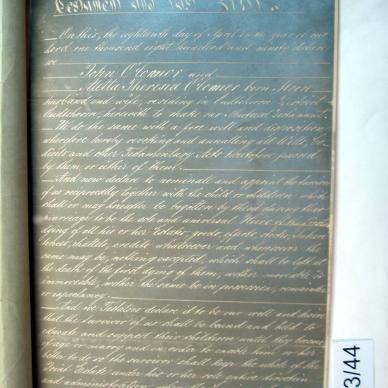 Testament and Last Will.
On this, the eighteenth day of April in the year of our
Lord one thousand eight hundred and ninety
John O'Connor and
Theresia O'Connor born
husband and wife, residing in Oudtshoorn District
Oudtshoorn, herewith to make our Mutual Testament.
We do the same with a free will and disposition
therefore hereby revoking and annulling all Wills,
and other Testamentary Acts heretofore passed
by them or either of them.
And now declare to nominate and appoint the Survivor
of us reciprocally together with the child or children which
shall or may hereafter be begotten by us during their
marriage to be the sole and universal Heirs of the first
dying of all his or her Estate, goods,
chattels, credits whatsoever and wheresoever the
same may be, nothing excepted, which shall be left at
the death of the first dying of them, either movable or
immovable, whether the same be in possession, remainder
or expectancy.
And we Testators declare it to be our will and desire
that the survivor of us shall be bound and held to
educate and support their children until they become
of age or married and in order to enable him or her
better to do so the survivor shall keep the whole of the
Joint Estate under his or her sole
and administration
3/44